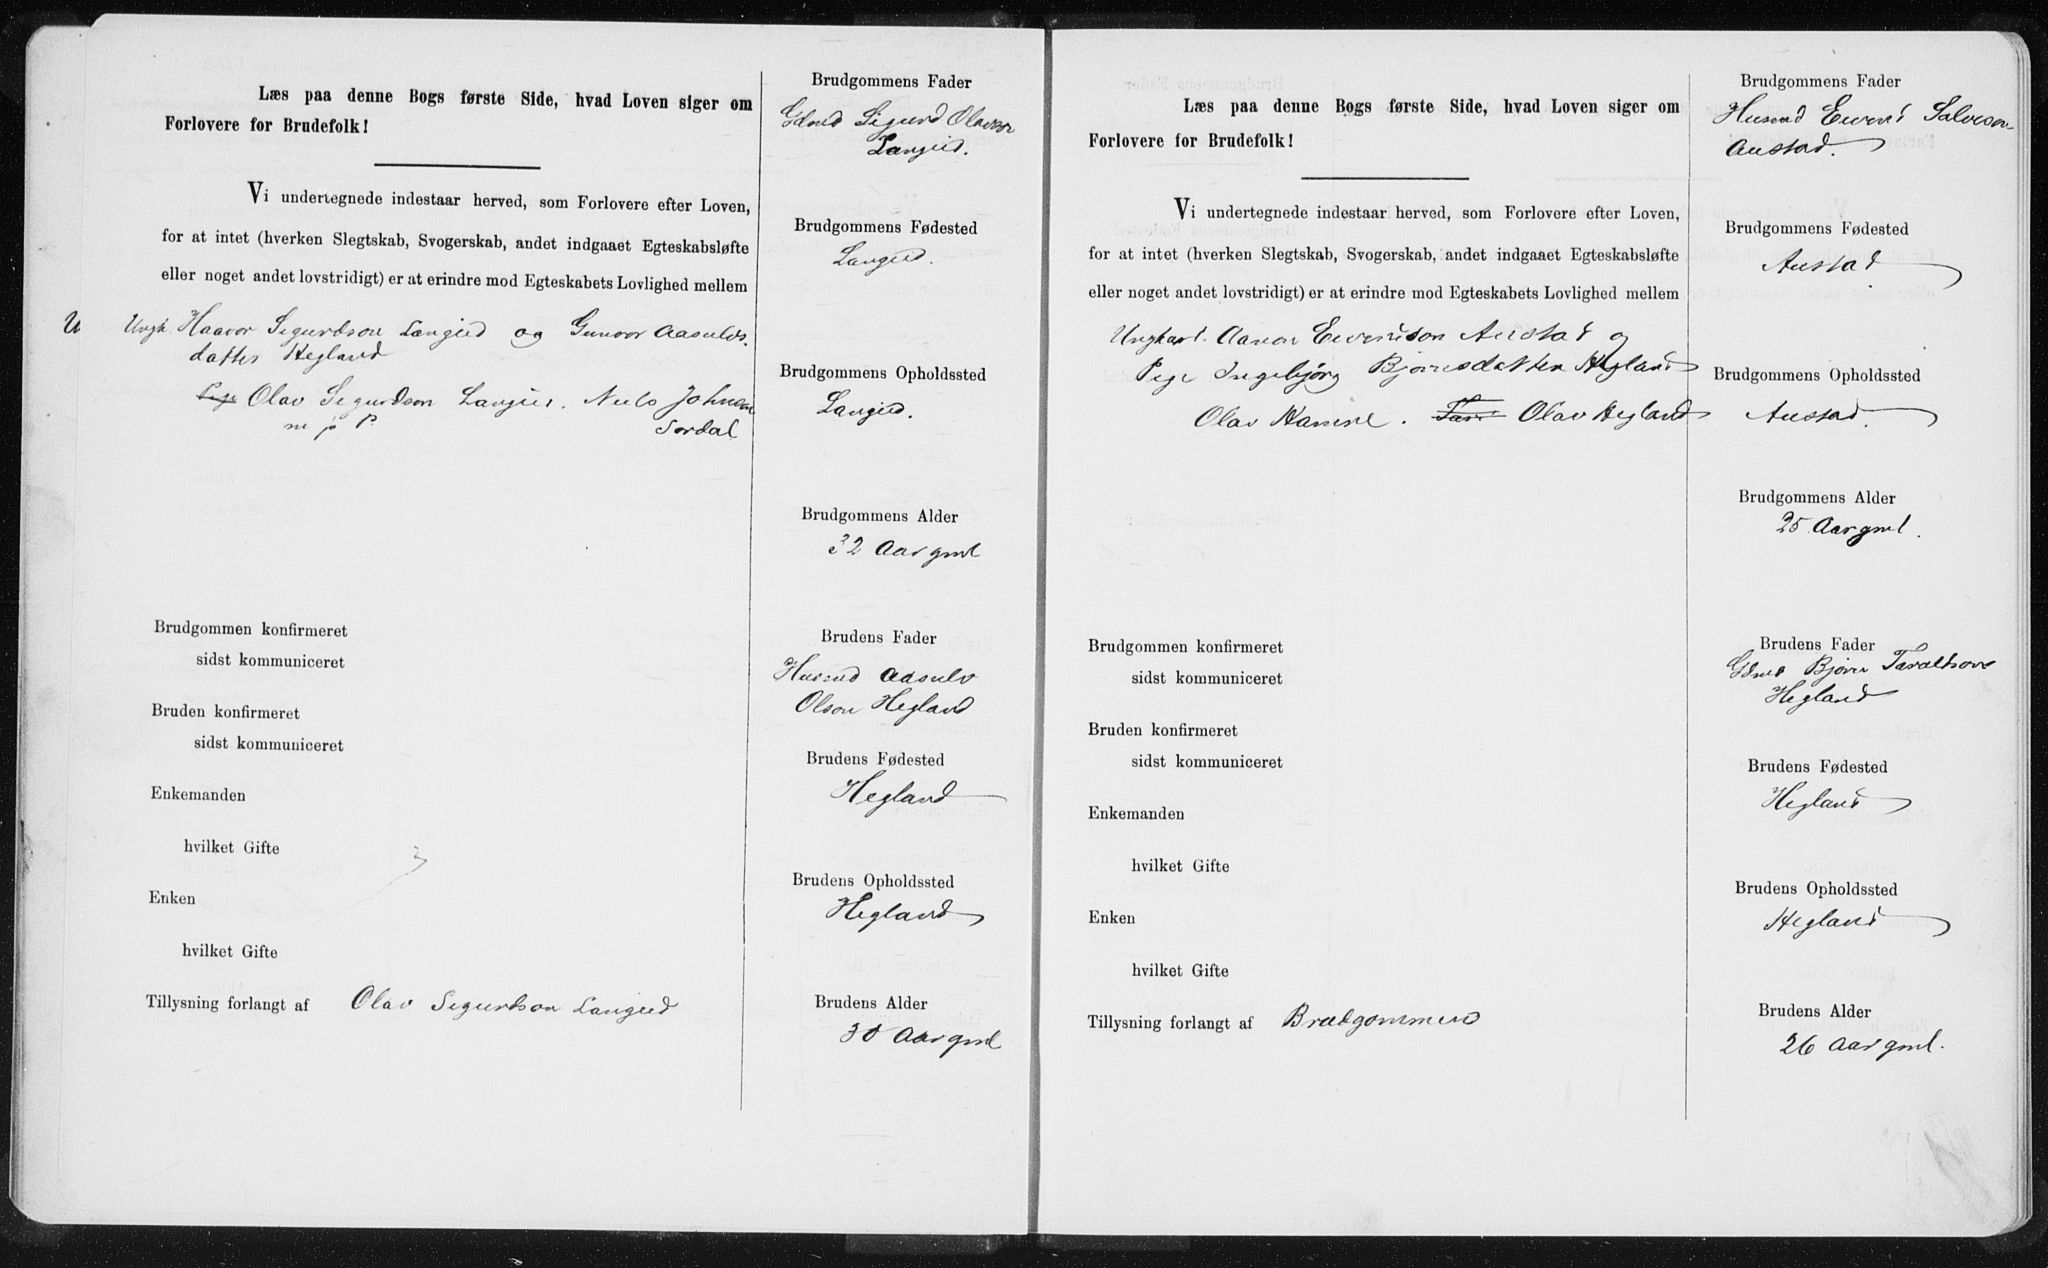 Læs paa denne Bogs første Side, hvad Loven siger om
Forlovere for Brudefolk!
Vi undertegnede indestaar herved, som Forlovere efter Loven,
for at intet (hverken Slegtskab, Svogerskab, andet indgaaet Egteskabsløfte
eller noget andet lovstridigt) er at erindre mod Egteskabets Lovlighed mellem
U Ungk. Haavor Sigurdson Langeid og Gunvor Aasulvs.
datter Hegland
Olav Sigurdson Langeid. Nils Johnson
m. p. P. Sordal
Brudgommen konfirmeret
sidst kommuniceret
Bruden konfirmeret
sidst kommuniceret
Enkemanden
hvilket Gifte
Enken
hvilket Gifte
Tillysning forlangt af Olav Sigurdson Langeid
Brudgommens Fader
Gdmd Sigurd Olavson
Langeid.
Brudgommens Fødested
Langeid.
Brudgommens Opholdssted
Langeid.
Brudgommens Alder
32 Aar gml
Brudens Fader
Husmd Aasulv
Olson Hegland
Brudens Fødested
Hegland
Brudens Opholdssted
Hegland
Brudens Alder
30 Aar gml
Læs paa denne Bogs første Side, hvad Loven siger om
Forlovere for Brudefolk!
Vi undertegnede indestaar herved, som Forlovere efter Loven,
for at intet (hverken Slegtskab, Svogerskab, andet indgaaet Egteskabsløfte
eller noget andet lovstridigt) er at erindre mod Egteskabets Lovlighed mellem
Ungkarl. Aanon Eivindson Austad og
Pige Ingebjørg Bjørnsdatter Hegland
Olav Hamre. Olav Hegland
Brudgommen konfirmeret
sidst kommuniceret
Bruden konfirmeret
sidst kommuniceret
Enkemanden
hvilket Gifte
Enken
hvilket Gifte
Tillysning forlangt af Brudgommen
Brudgommens Fader
Husmd Eivind Salveson
Austad.
Brudgommens Fødested
Austad
Brudgommens Opholdssted
Austad.
Brudgommens Alder
25 Aar gml.
Brudens Fader
Gdmd Bjørn Taraldson
Hegland
Brudens Fødested
Hegland
Brudens Opholdssted
Hegland
Brudens Alder
26 Aar gml.